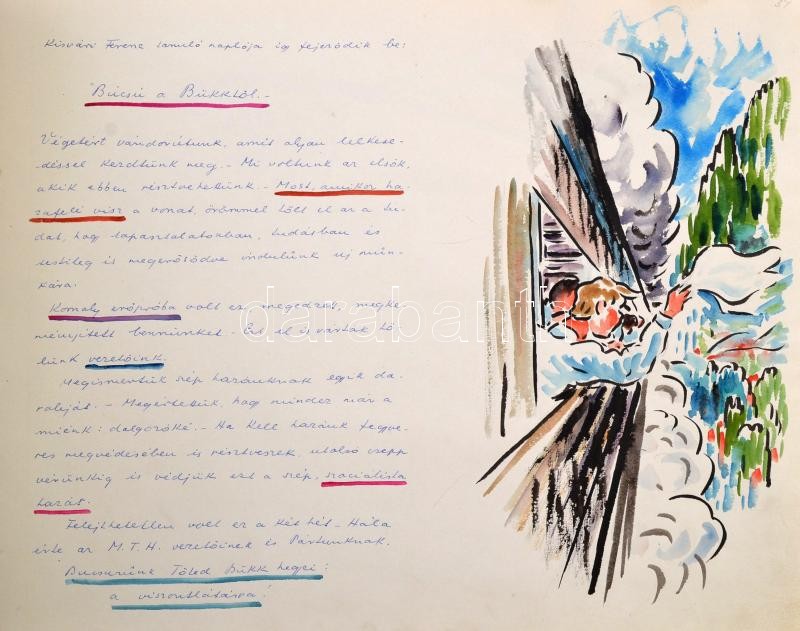 Kisvári Ferenc tanuló naplója így fejeződik be:
"Búcsú a Bükktől.-
Végetért vándorútunk, amit olyan lelkese-
-déssel kezdtünk meg.- Mi voltunk az elsők,
akik ebben résztvehettünk.- Most, amikor ha-
zafelé visz a vonat, örömmel tölt el az a tu-
dat, hogy tapasztalatokban, tudásban és
testileg is megerősödve indulunk új mun-
kára.
Komoly erőpróba volt ez, megedzett, megke-
ményített bennünket.- Ezt el is várták tő-
lünk vezetőink.
Megismertük szép hazánknak egyik da-
rabját.- Megértettük, hogy mindez már a
miénk: dolgozóké.- Ha kell hazánk fegyve-
res megvédésében is résztveszek, utolsó csepp
vérünkig is védjük ezt a szép, szocialista
hazát.
Felejthetetlen volt ez a két hét.- Hála
érte az M.T.H. vezetőinek és Pártunknak.
Bucsuzunk Tőled Bükk hegyei:
a viszontlátásra!
darabanth